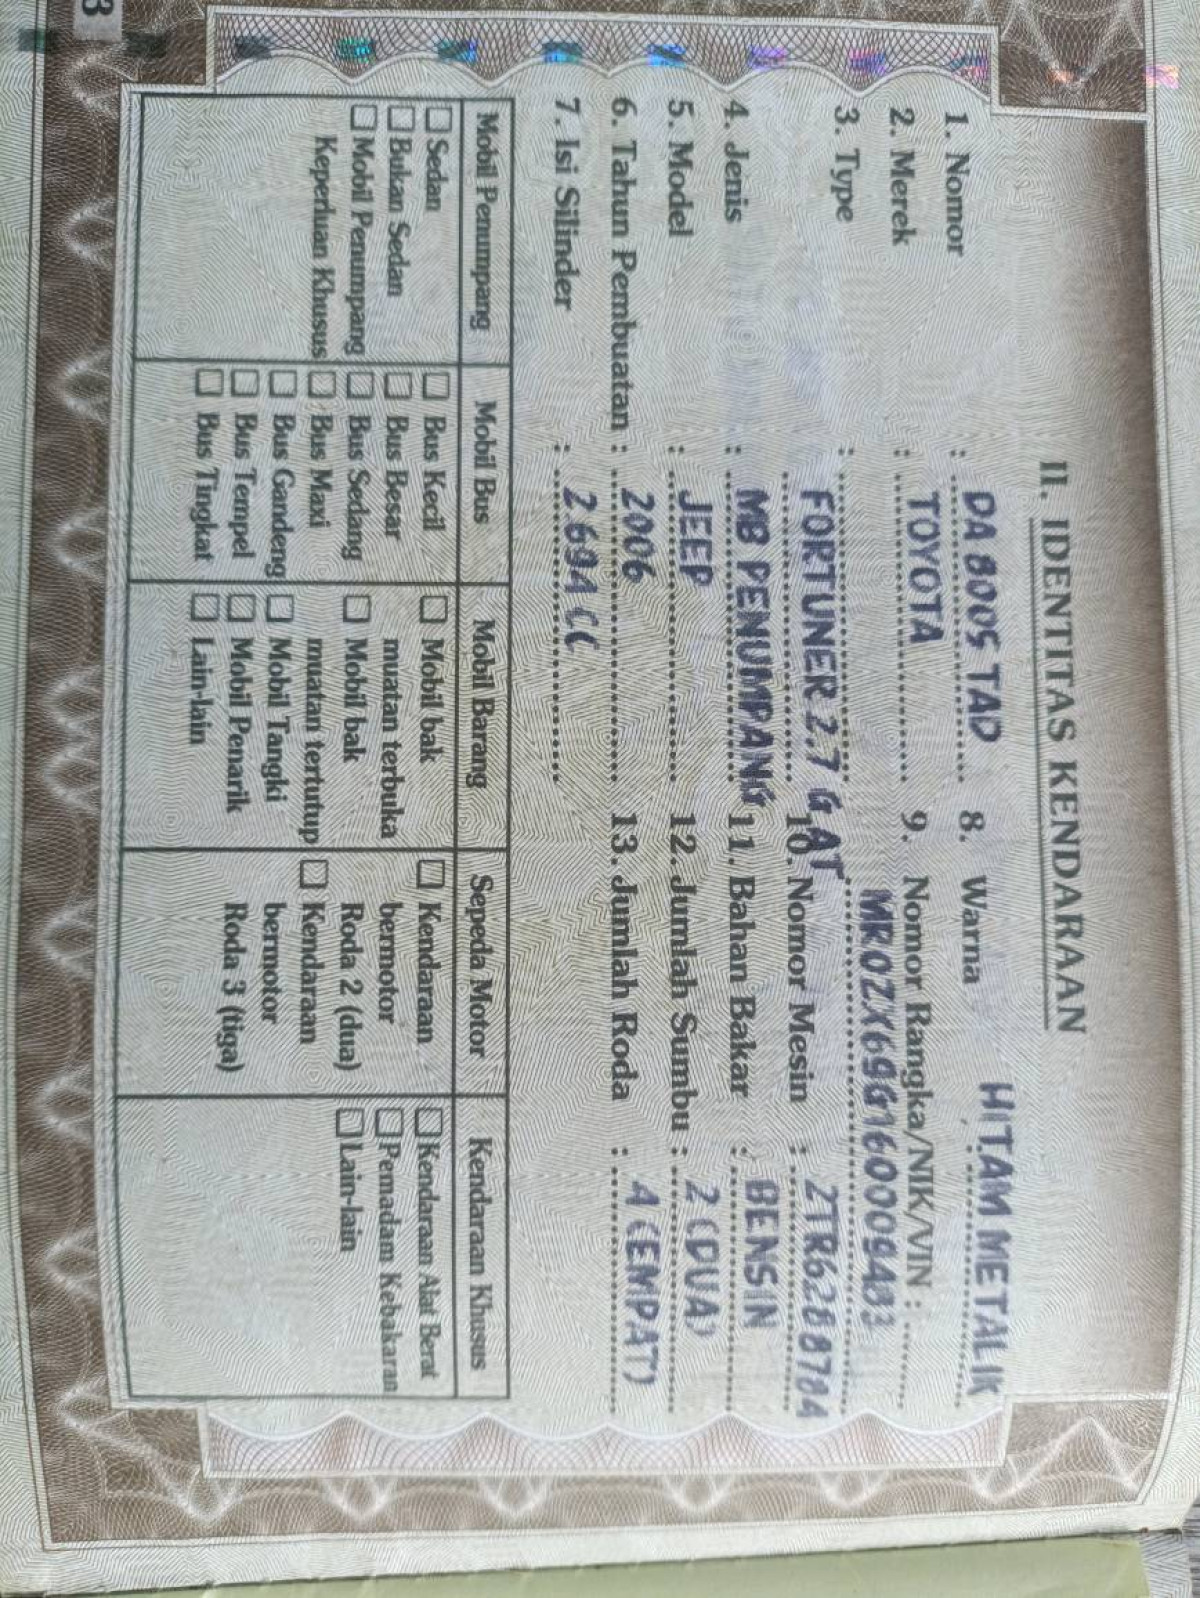 3
II. IDENTITAS KENDARAAN
1. Nomor : DA 8005 TAD
2. Merek : TOYOTA
3. Type : FORTUNER 2.7 G AT
4. Jenis : MB PENUMPANG
5. Model : JEEP
6. Tahun Pembuatan : 2006
7. Isi Silinder : 2694 CC
8. Warna : HITAM METALIK
9. Nomor Rangka/NIK/VIN :
10. Nomor Mesin : 2TR6288784
11. Bahan Bakar : BENSIN
12. Jumlah Sumbu : 2 (DUA)
13. Jumlah Roda : 4 (EMPAT)
Mobil Penumpang
Sedan
Bukan Sedan
Mobil Penumpang
Keperluan Khusus
Mobil Bus
Bus Kecil
Bus Besar
Bus Sedang
Bus Maxi
Bus Gandeng
Bus Tempel
Bus Tingkat
Mobil Barang
Mobil bak
muatan terbuka
Mobil bak
muatan tertutup
Mobil Tangki
Mobil Penarik
Lain-lain
Sepeda Motor
Kendaraan
bermotor
Roda 2 (dua)
Kendaraan
bermotor
Roda 3 (tiga)
Kendaraan Khusus
Kendaraan Alat Berat
Pemadam Kebakaran
Lain-lain